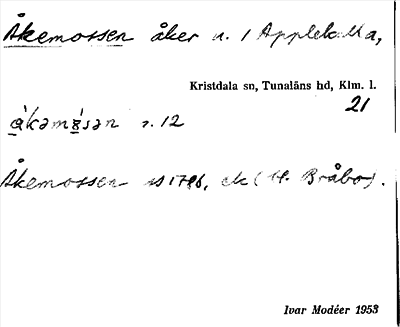 Åkemossen åker n. 1 Applekulla,
Kristdala sn, Tunaläns hd, Klm. l.
21
s. 12
Åkemossen 1796, ek (St. Bråbo).
Ivar Modéer 1953